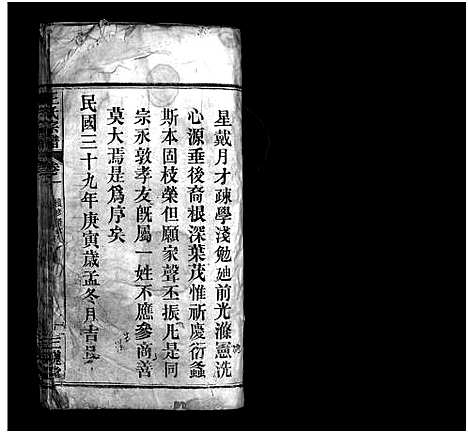 星戴月才疎學淺勉廸前光滌慮洗
心源垂後裔根深葉茂惟祈慶衍螽
斯本固枝榮但願家聲丕振凡是同
宗永敦孝友旣屬一姓不應參商善
莫大焉是爲序矣
民國三十九年庚寅歲孟冬月吉
王氏宗譜 卷
三槐